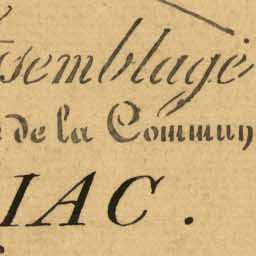 ssemblage
de la Commun
IAC.